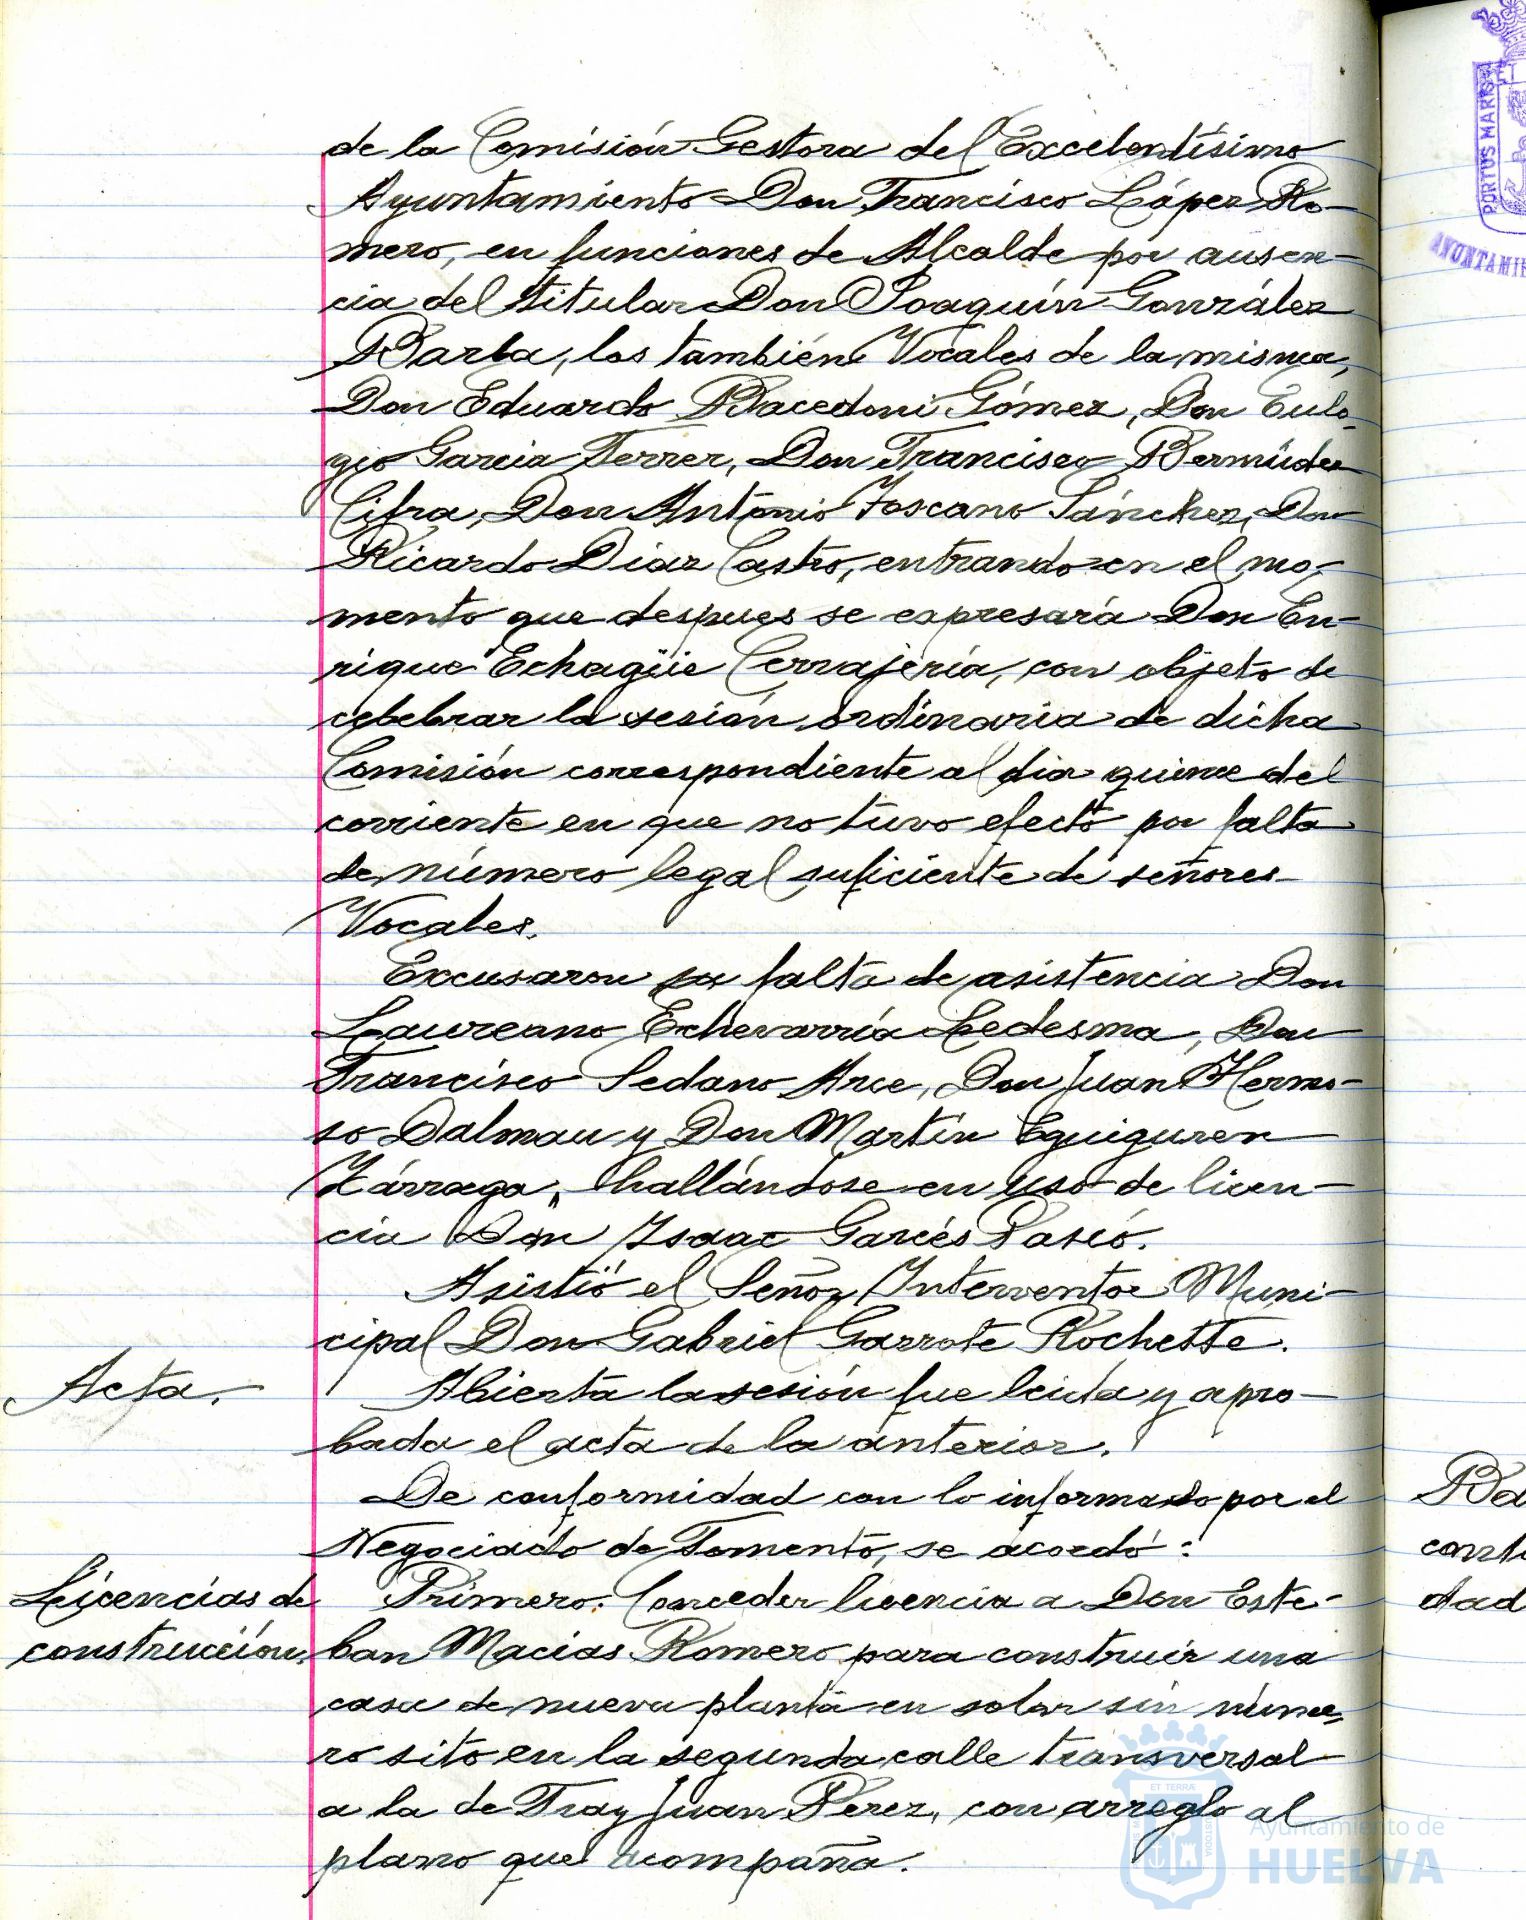 de la Comisión Gestora del Excelentísimo
Ayuntamiento Don Francisco López Ro-
mero, en funciones de Alcalde por ausen-
cia del titular Don Joaquín González
Barba, los también Vocales de la misma,
Don Eduardo Bacedoni Gómez, Don Eulo-
gio Garcia Ferrer, Don Francisco Bermúdez
Cifra, Don Antonio Toscano Sánchez, Don
Ricardo Díaz Castro, entrando en el mo-
mento que despues se expresará Don En-
rique Echagüe Cerrajería, con objeto de
celebrar la sesión ordinaria de dicha
Comisión correspondiente al dia quince del
corriente en que no tuvo efecto por falta
de número legal suficiente de señores
Vocales.
Excusaron su falta de asistencia Don
Laureano Echevarría Ledesma, Don
Francisco Sedano Arce, Don Juan Hermo-
so Dalmau y Don Martín Eguiguren
Zárraga, hallándose en uso de licen-
cia Don Isaac Garcés Pasió.
Asistió el Señor Interventor Muni-
cipal Don Gabriel Garrote Rochette.
Acta.
Abierta la sesión fue leida y apro-
bada el acta de la anterior.
De conformidad con lo informado por el
Negociado de Fomento, se acordó:
Licencias de
construcción.
Primero. Conceder licencia a Don Este-
ban Macias Romero para construir una
casa de nueva planta en solar sin núme-
ro sito en la segunda calle transversal
a la de Fray Juan Pérez, con arreglo al
plano que acompaña.
PORTUS MARIS ET
AYUNTAMI
Ba
cont
dad
Ayuntamiento de
HUELVA